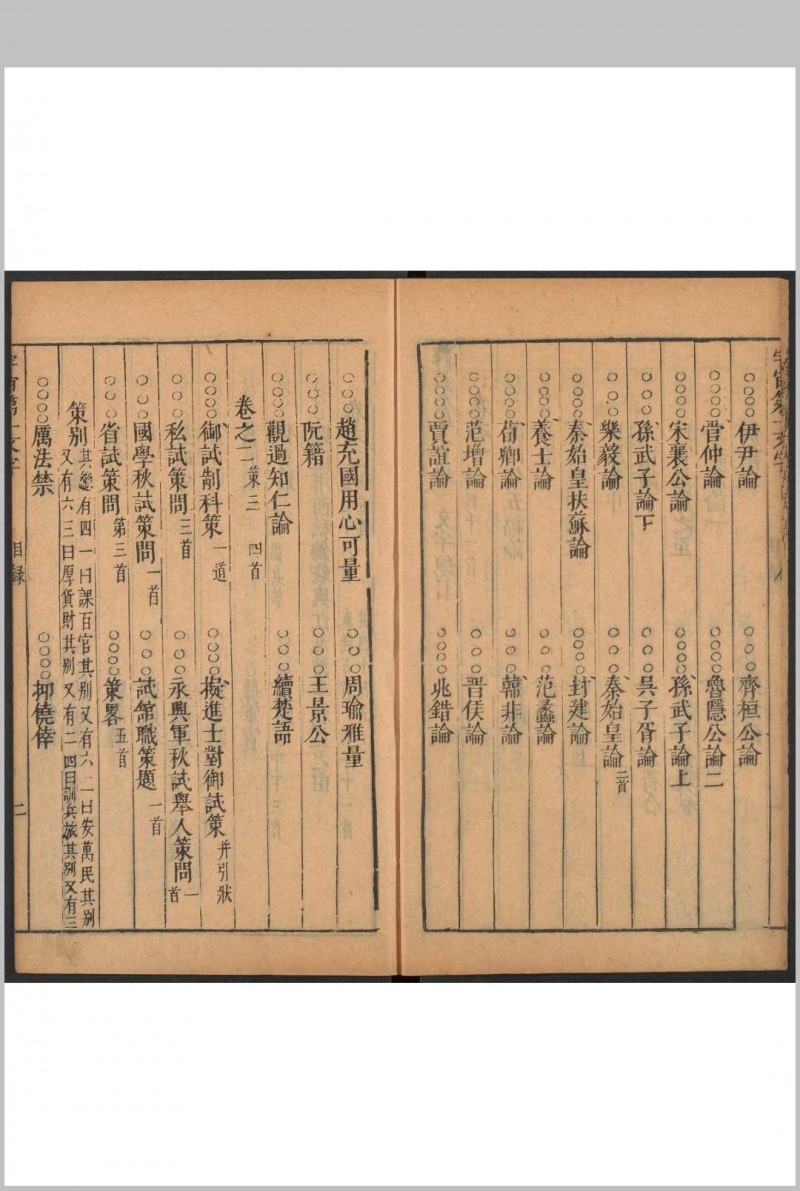 伊尹論 齊桓公論
管仲論 魯隱公論二
宋襄公論 孫武子論上
孫武子論下 吳子胥論
樂毅論 秦始皇論二首
秦始皇扶蘇論 封建論
養士論 范蠡論
荀卿論 韓非論
范增論 晉侯論
賈誼論 鼂錯論
趙充國用心可量 周瑜雅量
阮籍 王景公
觀過知仁論 續楚語
卷之二 策三 四首
御試制科策一道 擬進士對御試策并引狀
私試策問三首 永興軍秋試舉人策問一首
國學秋試策問一首 試館職策題一首
省試策問第三首 策畧五首
策別其變有四一曰課百官其別又有六二曰安萬民其別
又有六三曰厚貨財其別又有二四曰訓兵旅其別又有三
厲法禁 抑僥倖
目錄 二